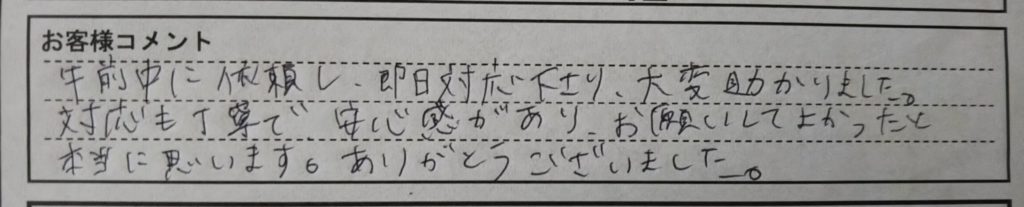 お客様コメント
午前中に依頼し、即日対応下さり、大変助かりました。
対応も丁寧で、安心感があり、お願いしてよかったと
本当に思います。ありがとうございました。